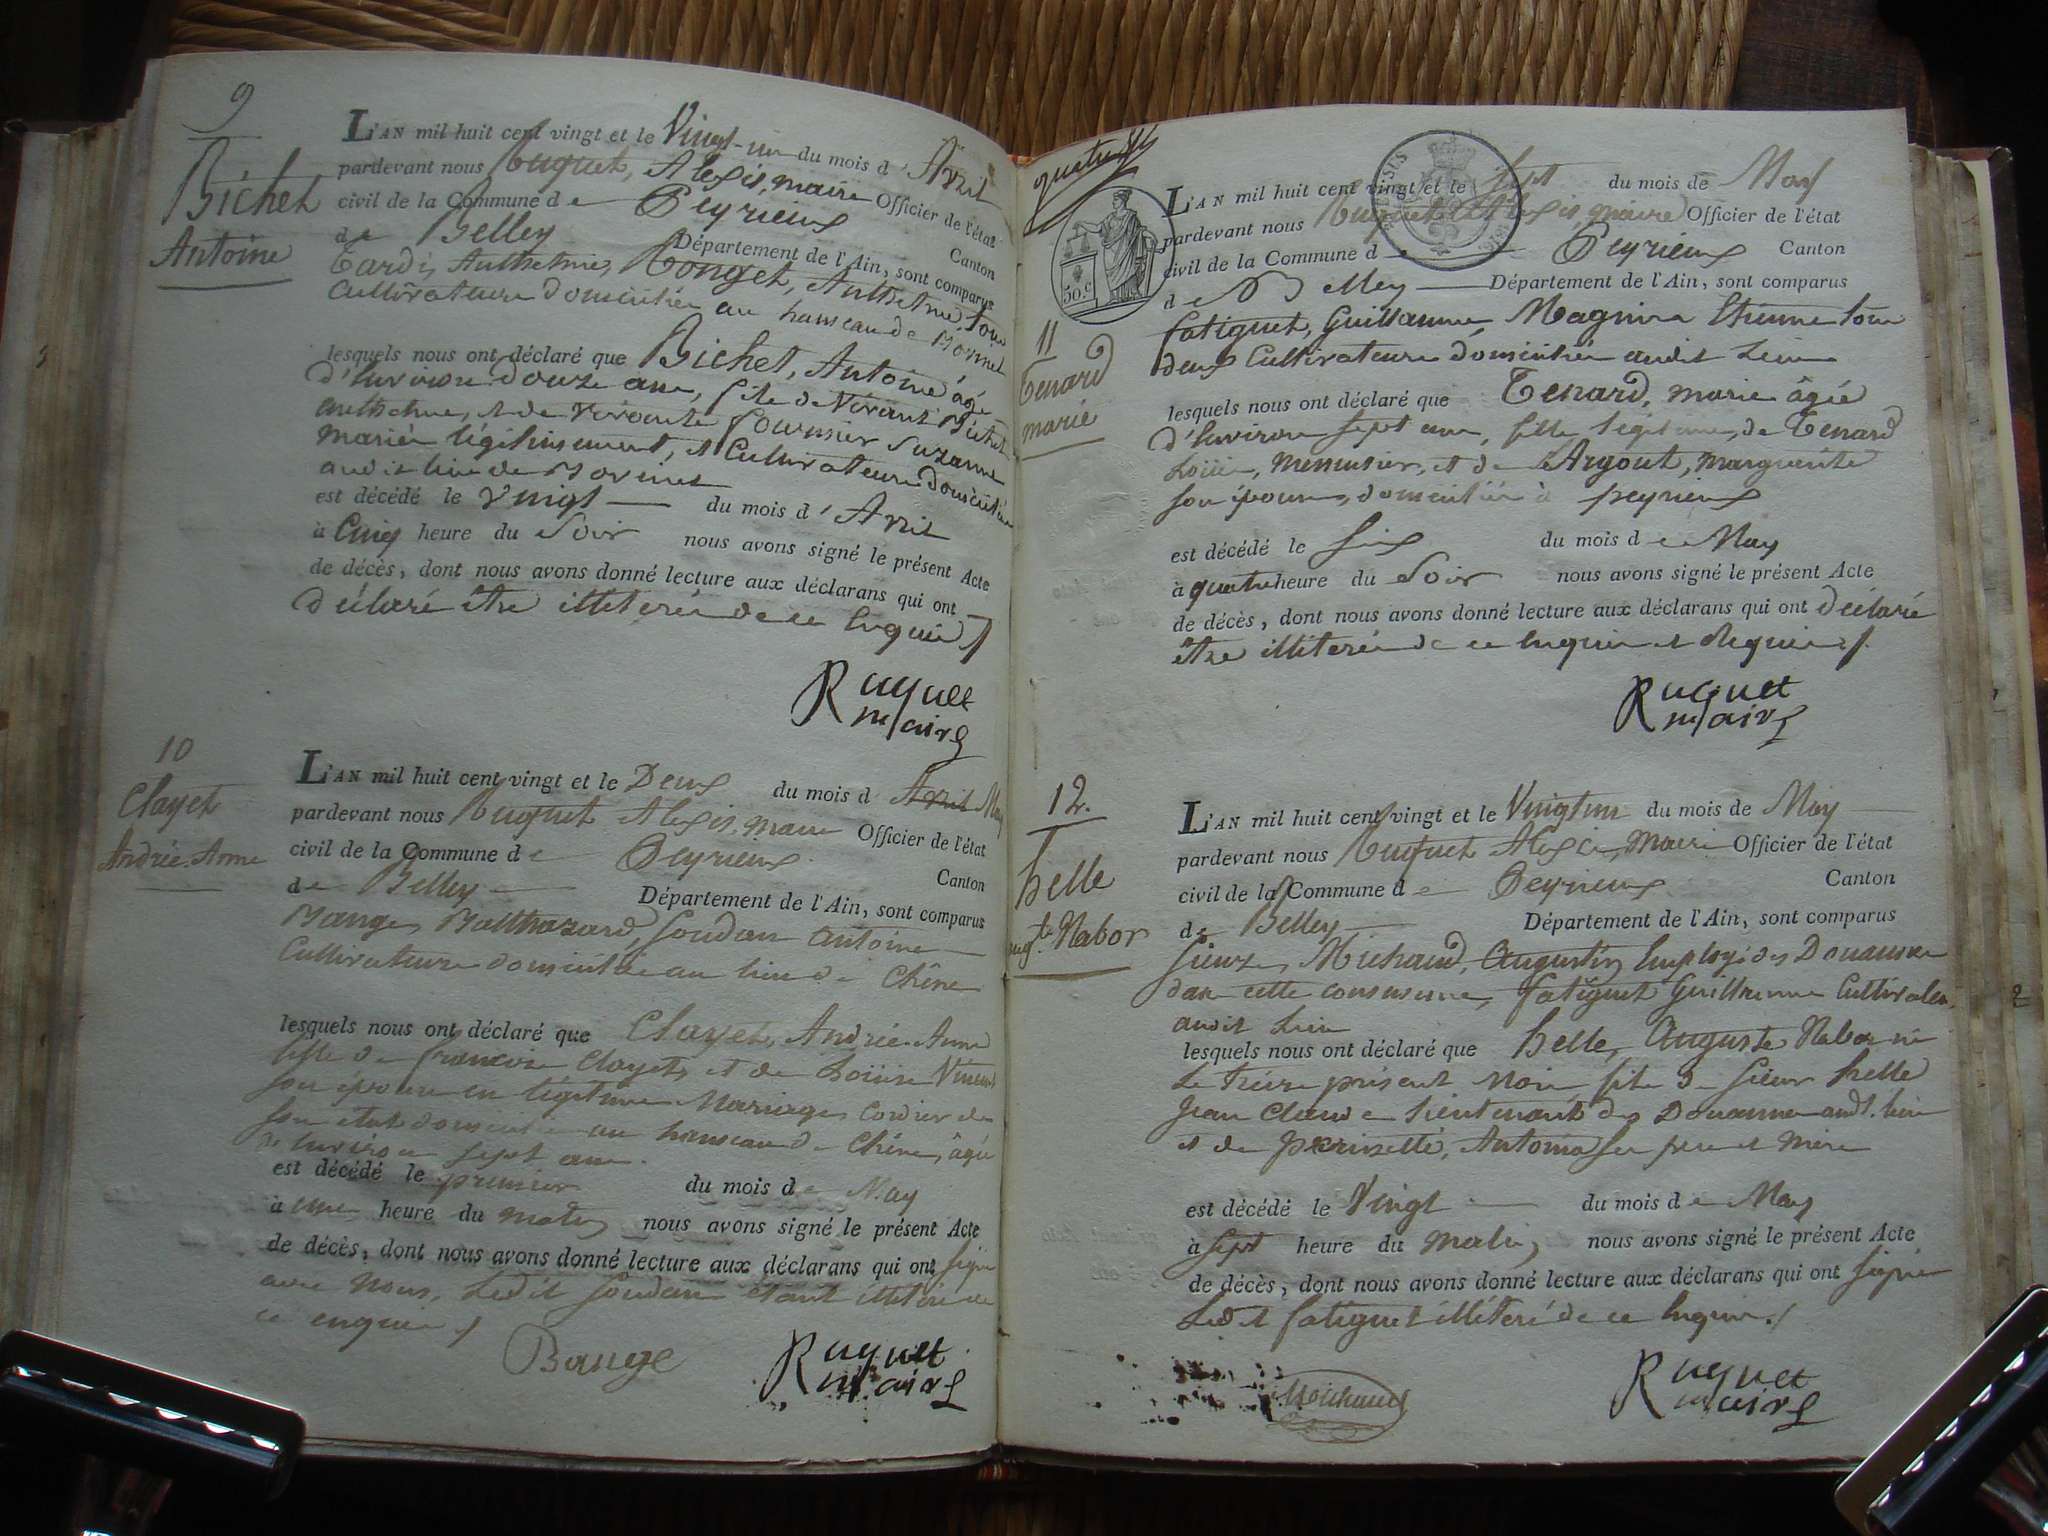 9
Bichet
Antoine
L'AN mil huit cent vingt et le Vingt-un du mois d'Avril
pardevant nous Ruquet, Alexis, maire Officier de l'état
civil de la Commune de Peyrieux Canton
de Belley Département de l'Ain, sont comparus
Tardi, Anthelme, Anthelme, tous
Cultivateurs domiciliés au hameau de
lesquels nous ont déclaré que Bichet, Antoine âgé
d'Environ douze ans, fils de Vivant Bichet
Anthelme, et de vivante fournier Suzanne
mariés légitimement, et Cultivateurs domiciliés
audit lieu de
est décédé le Vingt du mois d'Avril
à Cinq heure du Soir nous avons signé le présent Acte
de décès, dont nous avons donné lecture aux déclarans qui ont
déclaré être illiterés de ce Enquis
Ruquet
maire
10
Clayet
Andrée-Anne
L'AN mil huit cent vingt et le Deux du mois d Avril May
pardevant nous Ruquet Alexis, maire Officier de l'état
civil de la Commune de Peyrieux Canton
de Belley Département de l'Ain, sont comparus
Balthazard, Goudan antoine
Cultivateurs domiciliés au lieu de Chêne
lesquels nous ont déclaré que Clayet, Andrée-Anne
fille de francois Clayet, et de Louise Vincent
son épouse en légitime Mariage, Cordier de
son état domicilié au hameau de Chêne, âgée
d'Environ sept ans
est décédé le premier du mois de May
à une heure du matin nous avons signé le présent Acte
de décès, dont nous avons donné lecture aux déclarans qui ont signé
avec Nous, Ledit Goudan étant illiteré de
ce enquis
Bauge
Ruquet
maire
50.c
11
Tenard
marie
L'AN mil huit cent vingt et le Sept du mois de May
pardevant nous Ruquet Alexis, maire Officier de l'état
civil de la Commune de Peyrieux Canton
de Belley Département de l'Ain, sont comparus
fatiguet, Guillaume, Magnin Etienne tous
deux Cultivateurs domiciliés audit Lieu
lesquels nous ont déclaré que Tenard, marie âgée
d'Environ Sept ans, fille légitime, de Tenard
Menusier, et de Argout, Marguerite
son épouse, domiciliés à peyrieux
est décédé le Six du mois de May
à quatre heure du Soir nous avons signé le présent Acte
de décès, dont nous avons donné lecture aux déclarans qui ont déclaré
être illiterés de ce Enquis et Requis
Ruquet
maire
12.
helle
aug.te Nabor
L'AN mil huit cent vingt et le Vingt un du mois de May
pardevant nous Ruquet Alexis, Maire Officier de l'état
civil de la Commune de Peyrieux Canton
de Belley Département de l'Ain, sont comparus
Sieurs, Michaud, Augustin, Employé des Douannes
dans cette commune, fatiguet Guillaume Cultivateur
audit Lieu
lesquels nous ont déclaré que helle, Auguste Nabor né
Le treize présent Mois fils de Sieur helle
Jean Claude Lieutenant des Douannes audt. lieu
et de Antonia ses pere et Mère
est décédé le Vingt du mois de May
à Sept heure du Matin, nous avons signé le présent Acte
de décès, dont nous avons donné lecture aux déclarans qui ont signé
Ledit fatiguet illiteré de ce Enquis.
Michaud
Ruquet
maire